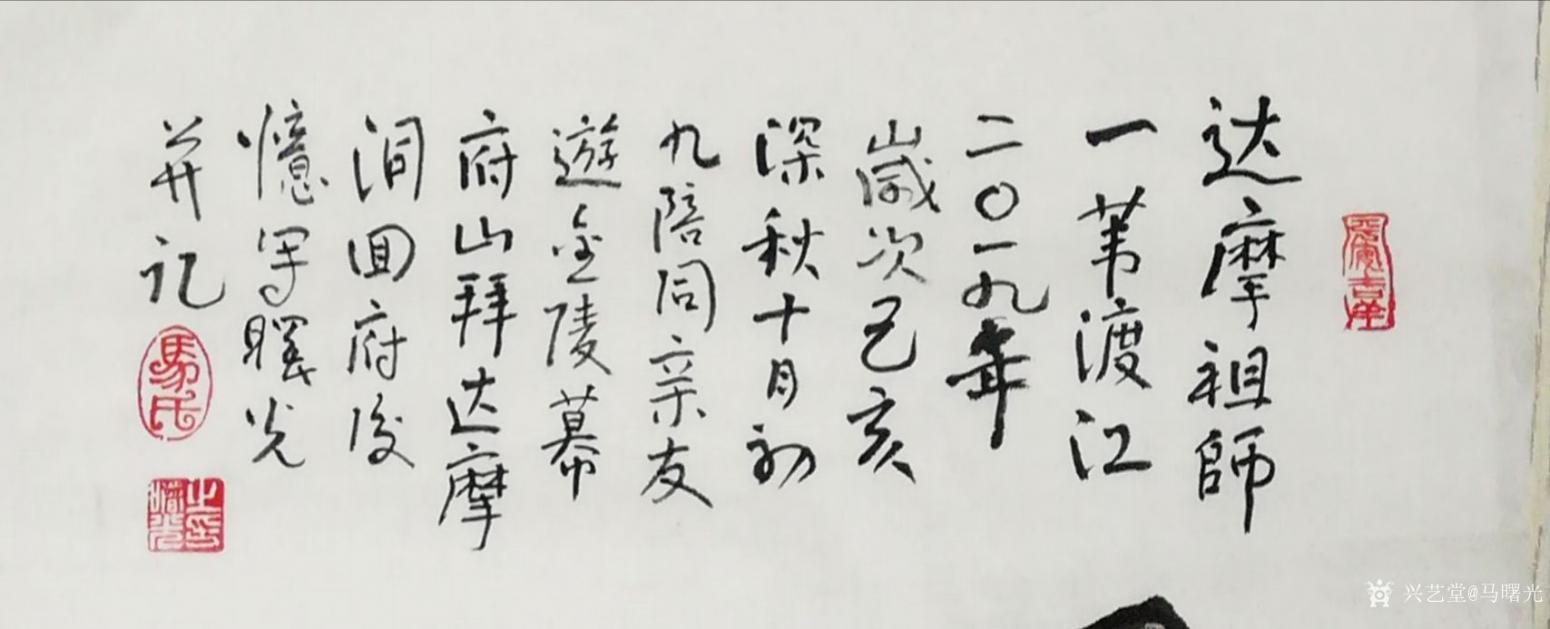 达摩祖師
一苇渡江
二〇一九年
歲次己亥
深秋十月初
九陪同亲友
遊金陵幕
府山拜达摩
洞回府后
憶写曙光
并记
馬氏
曙光之印
兴艺堂@马曙光